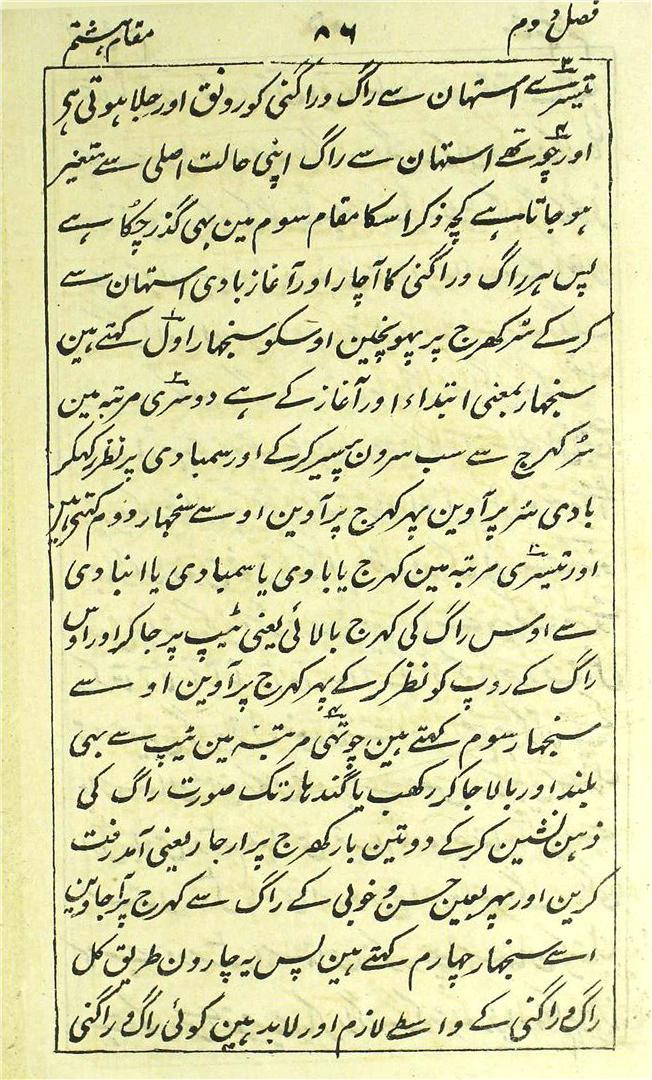 فصل دوم ۸۶ مقام ہشتم
تیسرے استہان سے راگ وراگنی کو رونق اور جلا ہوتی ہی
اور چوتھے استہان سے راگ اپنی حالت اصلی سے متغیر
ہوجاتا ہے کچہ ذکر اسکا مقام سوم مین بہی گذر چکا ہے
پس ہر راگ وراگنی کا آچار اور آغاز بادی استہان سے
کرکے سُر کھرج پر پہونچین اوسکو سنجہار اول کہتے ہین
سنجہار بمعنی ابتداء اور آغاز کے ہے دوسری مرتبہ مین
سُر کہرج سے سب سرون پر سیر کرکے اور سمبادی پر نظر رکہکر
بادی سُر پر آوین پہر کہرج پر آوین اوسے سنجہار دوم کہتے ہین
اور تیسری مرتبہ مین کہرج یا بادی یا سمبادی یا انبادی
سے اوس راگ کی کہرج بالائی یعنی ٹیپ پر جاکر اور اوس
راگ کے روپ کو نظر کرکے پہر کہرج پر آوین اوسے
سنجہار سوم کہتے ہین چوتھی مرتبہ مین ٹیپ سے بہی
بلند اور بالا جاکر رکھب یا گندہار تک صورت راگ کی
ذہن نشین کرکے دو تین بار کھرج پر ارجار یعنی آمد رفت
کرین اور پہر بعین حسن و خوبی کے راگ سے کہرج پر آجاوین
اسے سنجہار چہارم کہتے ہین پس یہ چارون طریق کل
راگ و راگنی کے واسطے لازم اور لابد ہین کوئی راگ و راگنی